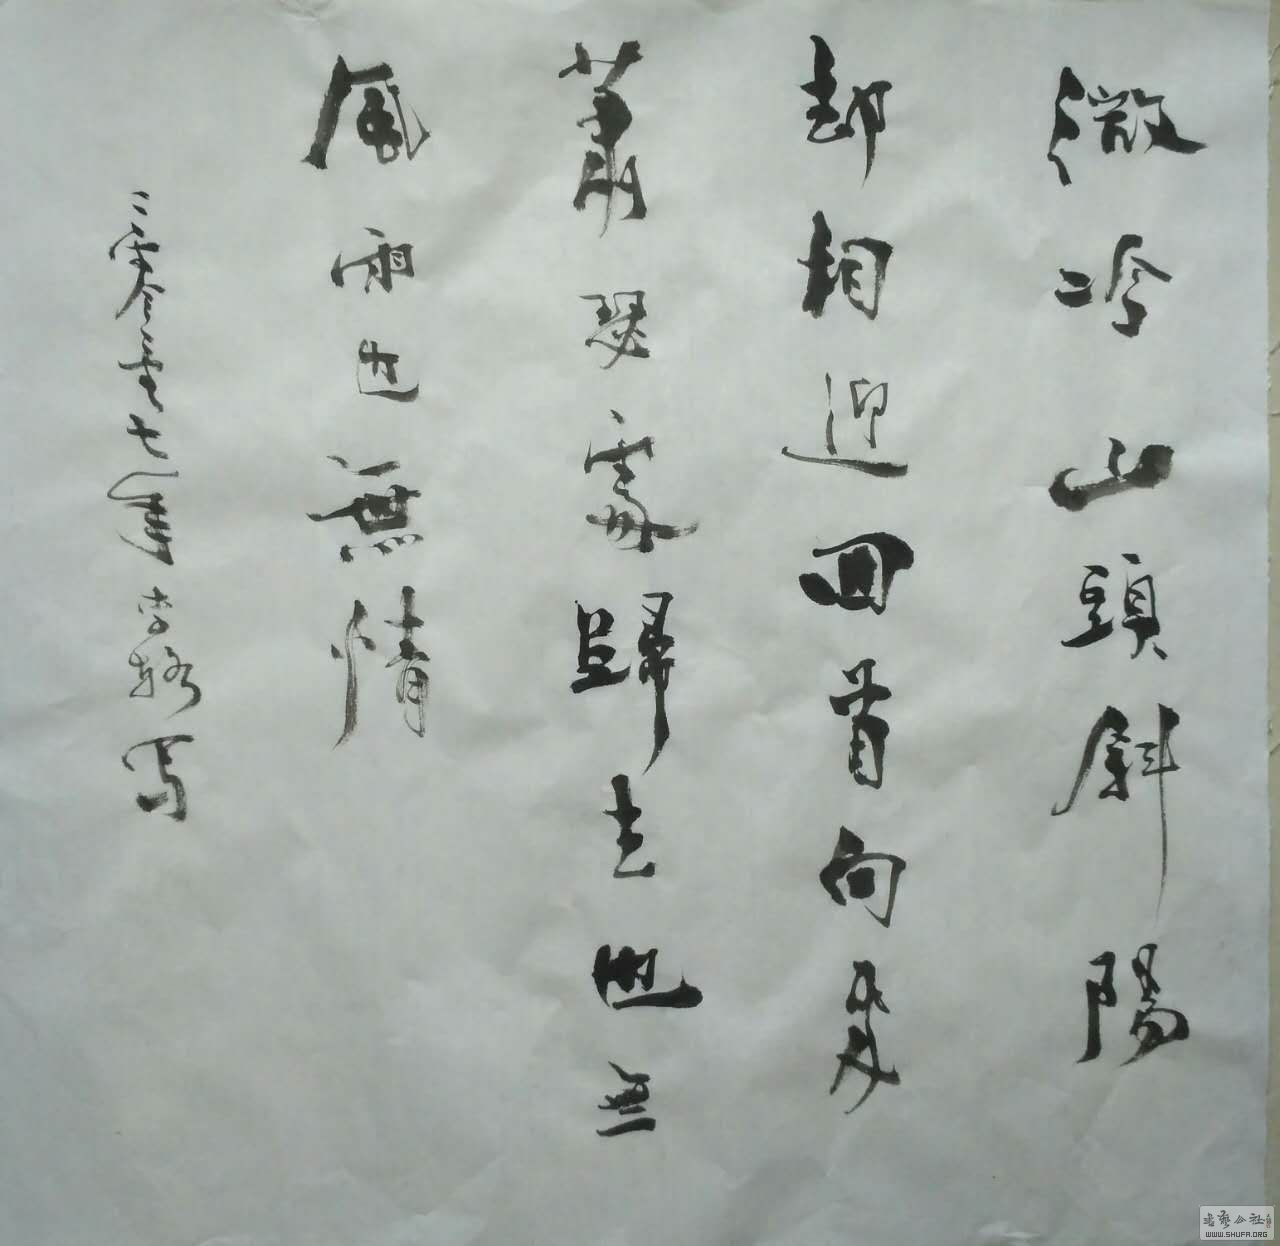 微冷山頭斜陽
却相迎回首向來
蕭瑟處歸去也無
風雨也無情
二零壹七年李寫
書藝公社
WWW.SHUFA.ORG